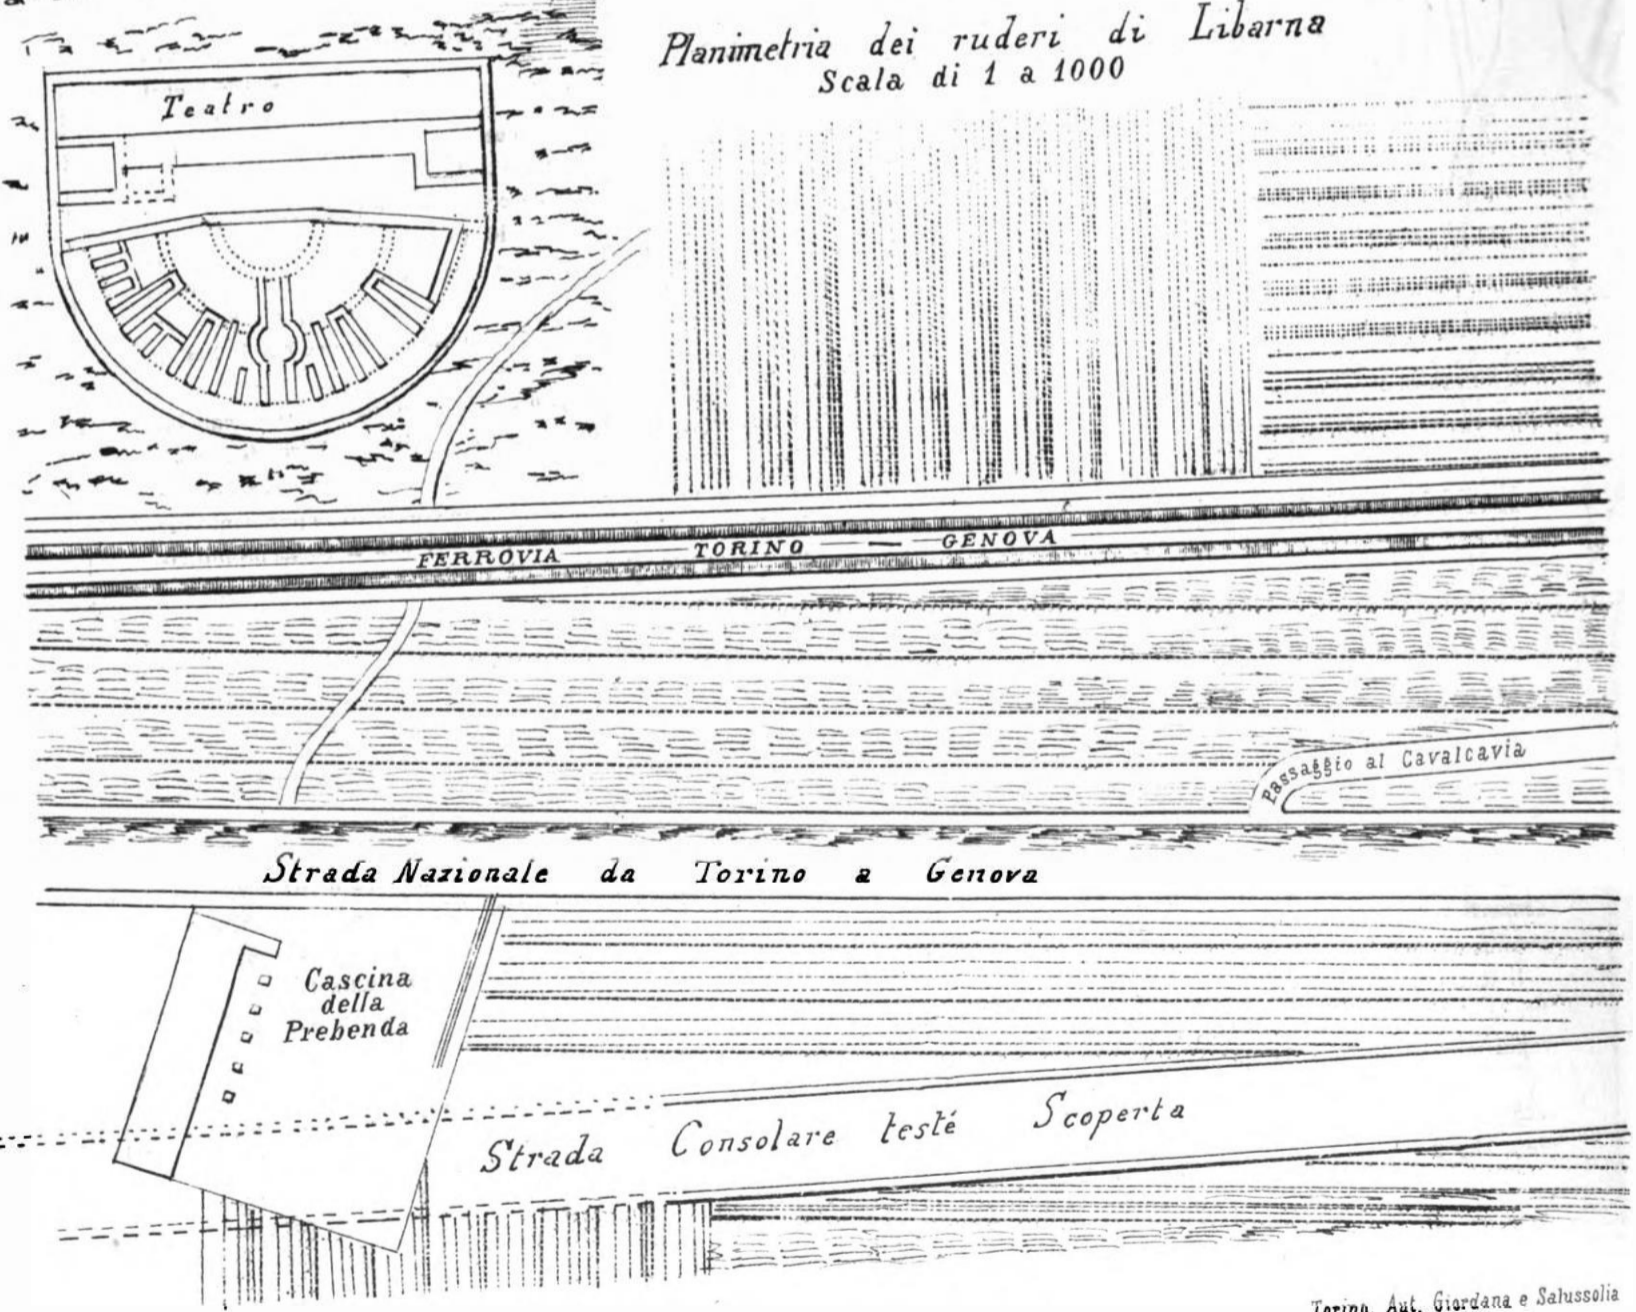 Planimetria dei ruderi di Libarna
Scala di 1 a 1000
Teatro
FERROVIA TORINO — GENOVA
Passaggio al Cavalcavia
Strada Nazionale da Torino a Genova
Cascina
della
Prebenda
Strada Consolare testé Scoperta
Torino, Aut. Giordana e Salussolia